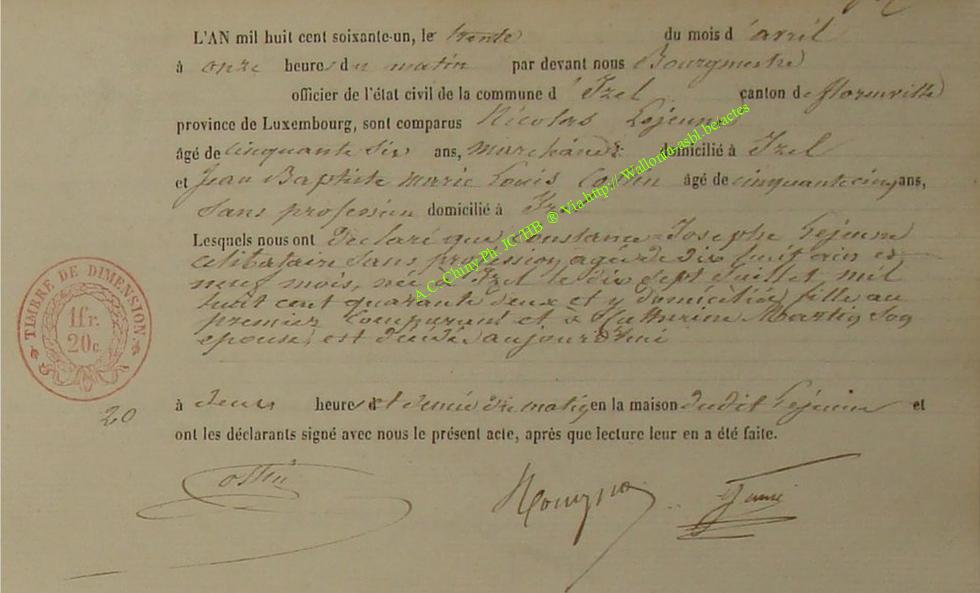 L'AN mil huit cent soixante-un, le trente du mois d'avril
à onze heures du matin par devant nous Bourgmestre
officier de l'état civil de la commune d'Izel canton de florenville
province de Luxembourg, sont comparus Nicolas Lejeune
âgé de cinquante six ans, marchand domicilié à Izel
et Jean Baptiste Marie Louis âgé de cinquante cinq ans,
sans profession domicilié à Izel
Lesquels nous ont déclaré que Constance Josephe Lejeune
celibataire sans profession, agée de dix huit ans et
neuf mois, née à Izel le dix sept Juillet mil
huit cent quarante deux et y domiciliée, fille au
premier Comparant et à Catherine Martin son
épouse, est décédée aujourd'hui
à deux heures et demie du matin en la maison dudit Lejeune et
ont les déclarants signé avec nous le présent acte, après que lecture leur en a été faite.
20
TIMBRE DE DIMENSION
1 fr.
20 c.
Lejeune
A.C. Chiny Ph. JC-HB ® Via http://Wallonia-asbl.be/actes